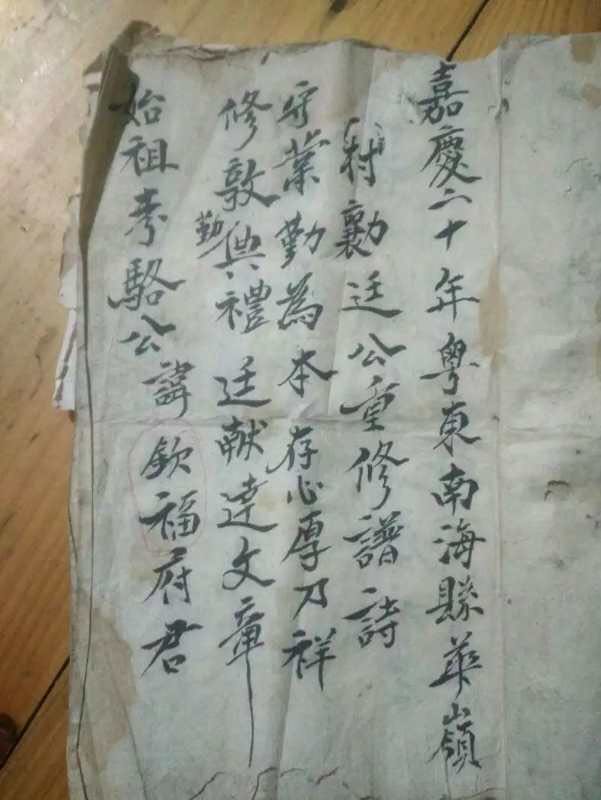 嘉慶二十年粵東南海縣華嶺
村勷廷公重修譜詩
守業勤為本存心厚乃祥
修敦典禮廷献達文章
勤
始祖考駱公諱欽福府君